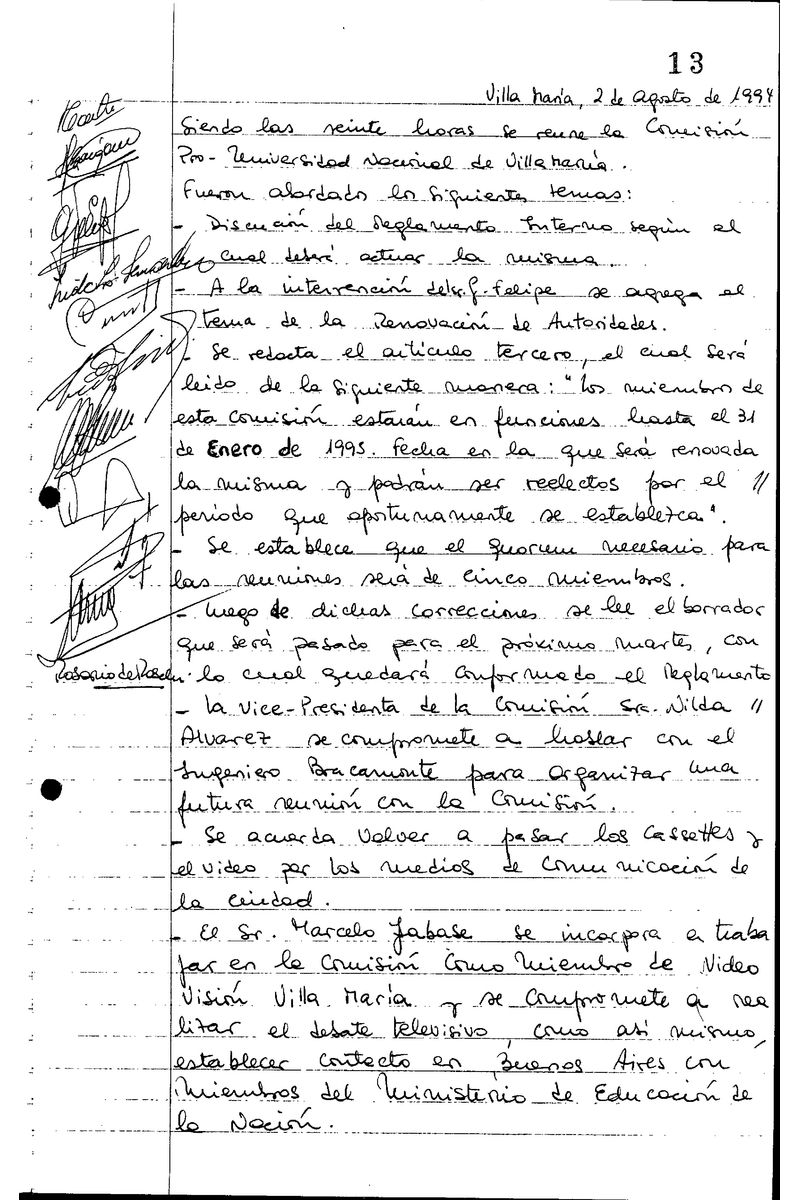 13
Villa María, 2 de Agosto de 1994
Siendo las veinte horas se reune la Comisión
Pro-Universidad Nacional de Villa María.
Fueron abordados los siguientes temas:
- Discusión del Reglamento Interno según el
cual deberá actuar la misma.
- A la intervención del sr. J. Felipe se agrega el
tema de la Renovación de Autoridades.
- Se redacta el artículo tercero, el cual será
leido de la siguiente manera: "Los miembros de
esta Comisión estarán en funciones hasta el 31
de Enero de 1995. Fecha en la que será renovada
la misma y podrán ser reelectos por el //
período que oportunamente se establezca".
- Se establece que el quorum necesario para
las reuniones será de cinco miembros.
- Luego de dichas correcciones se lee el borrador
que será pasado para el próximo martes, con
lo cual quedará conformado el Reglamento
- La Vice-Presidenta de la Comisión Sra. Nilda //
Alvarez se compromete a hablar con el
Ingeniero Bracamonte para organizar una
futura reunión con la Comisión.
- Se acuerda volver a pasar los cassettes y
el video por los medios de Comunicación de
la ciudad.
- El Sr. Marcelo Jabase se incorpora a traba
jar en la Comisión como miembro de Video
Visión Villa María y se compromete a rea
lizar el debate televisivo, como así mismo,
establecer contacto en Buenos Aires con
Miembros del Ministerio de Educación de
la Nación.